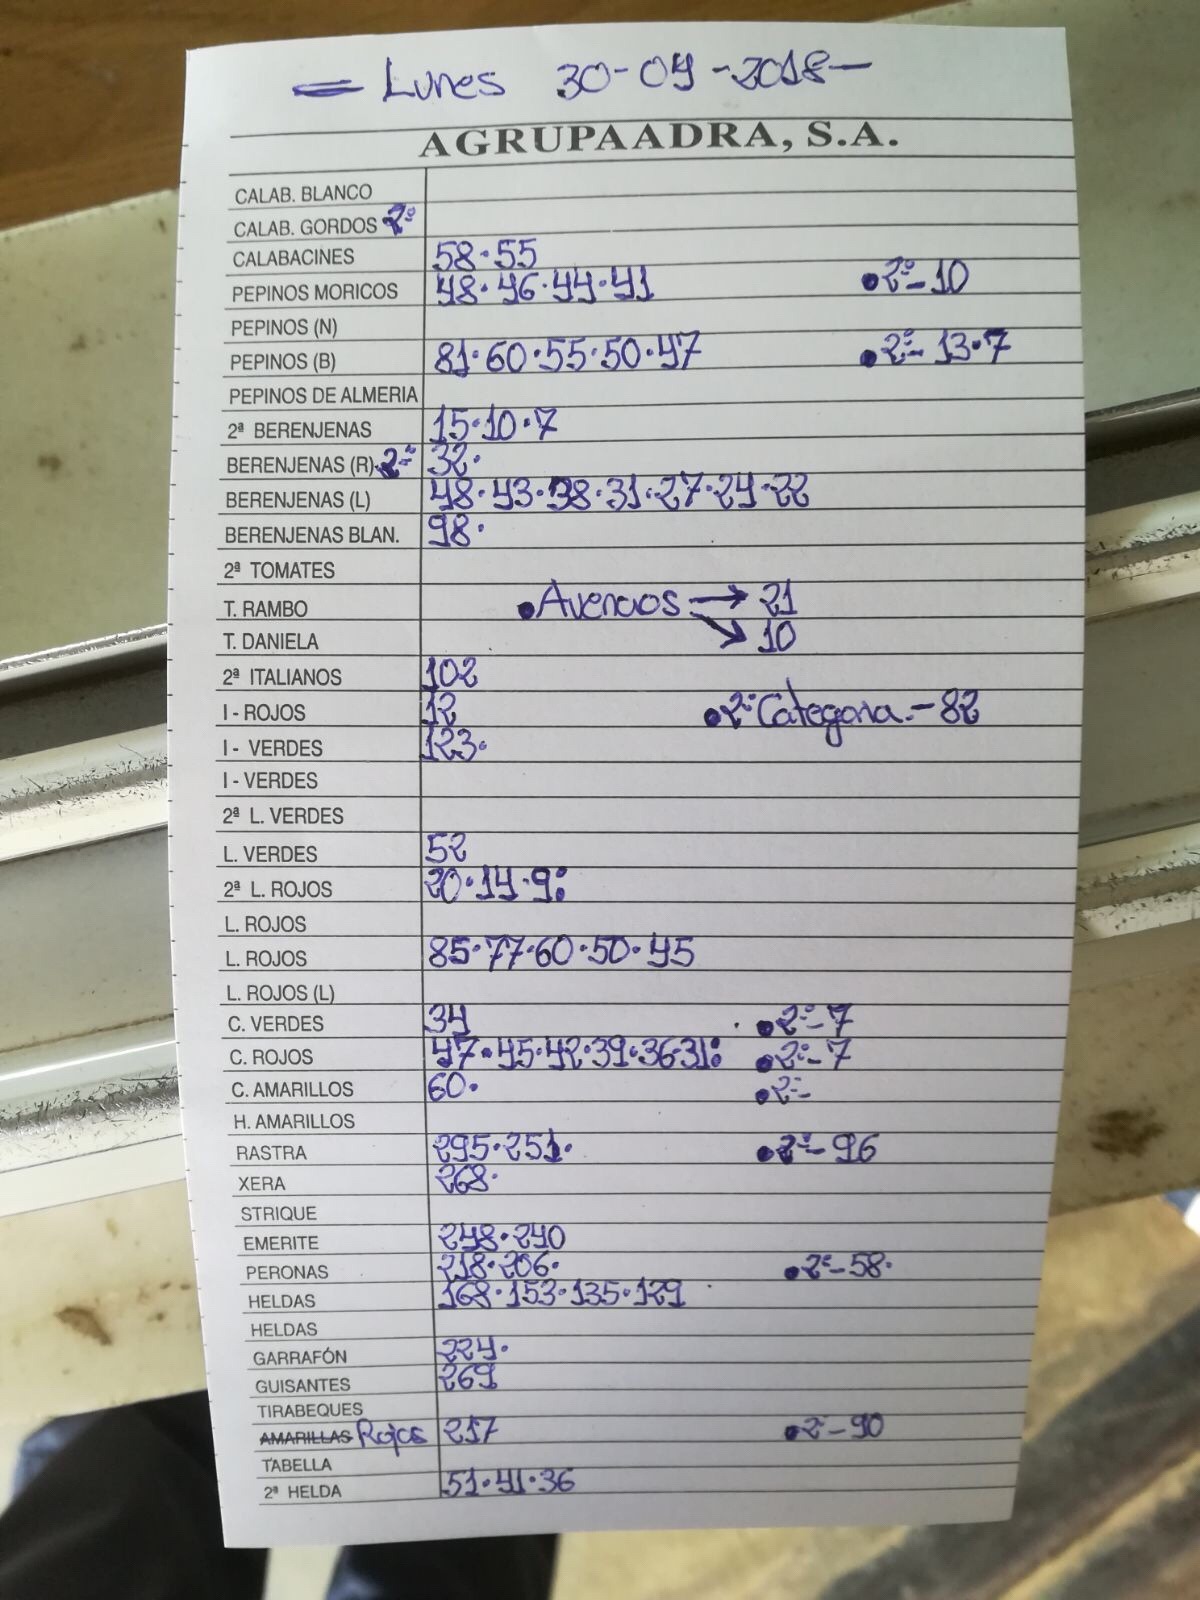 Lunes 30-04-2018-
AGRUPAADRA, S.A.
CALAB. BLANCO
CALAB. GORDOS 2ª
CALABACINES 58·55
PEPINOS MORICOS 48·46·44·41 •2ª-10
PEPINOS (N)
PEPINOS (B) 81·60·55·50·47 •2ª-13·7
PEPINOS DE ALMERIA
2ª BERENJENAS 15·10·7
BERENJENAS (R) 2ª 32·
BERENJENAS (L) 48·43·38·31·27·24·22
BERENJENAS BLAN. 98·
2ª TOMATES
T. RAMBO •Avenaos → 21
T. DANIELA ↘ 10
2ª ITALIANOS 102
I - ROJOS 12 •2ª Categoria.-82
I - VERDES 123·
I - VERDES
2ª L. VERDES
L. VERDES 52
2ª L. ROJOS 20·14·9:
L. ROJOS
L. ROJOS 85·77·60·50·45
L. ROJOS (L)
C. VERDES 34 •2ª-7
C. ROJOS 47·45·42·39·36·31: •2ª-7
C. AMARILLOS 60· •2ª-
H. AMARILLOS
RASTRA 295·251· •2ª-96
XERA 268·
STRIQUE
EMERITE 248·240
PERONAS 218·206· •2ª-58·
HELDAS 168·153·135·129
HELDAS
GARRAFÓN 224·
GUISANTES 269
TIRABEQUES
AMARILLAS Rojas 217 •2ª-90
TABELLA
2ª HELDA 51·41·36